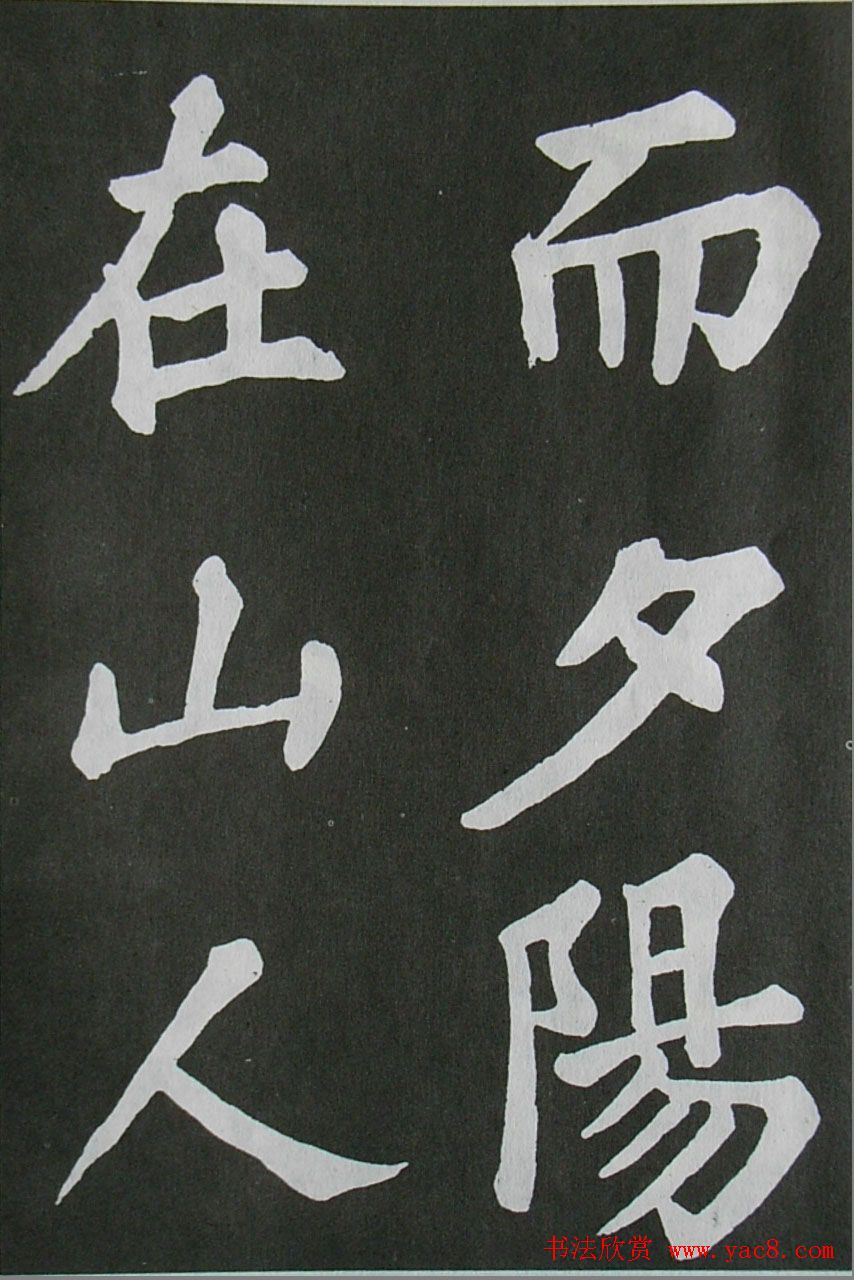 而夕陽
在山人
书法欣赏 www.yac8.com